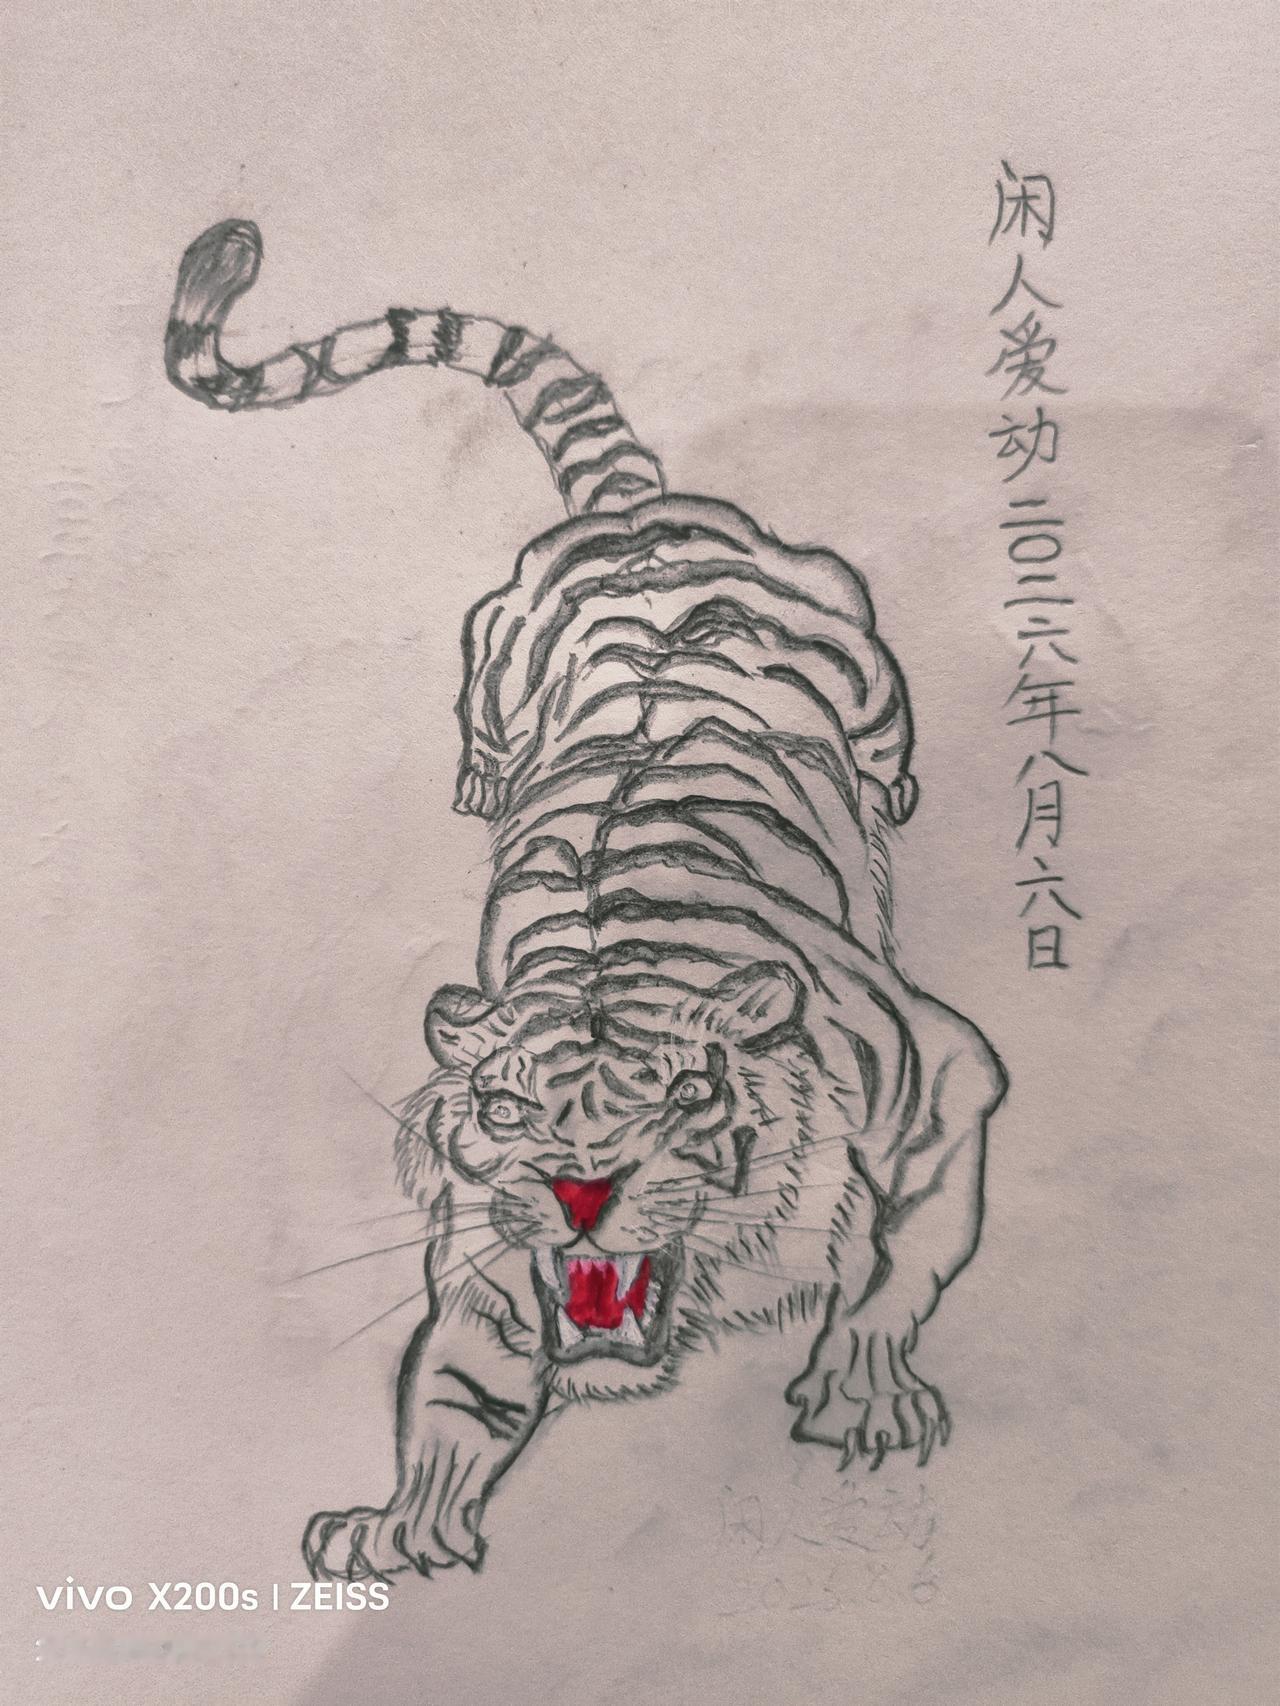 闲人爱动二〇二六年八月六日
闲人爱动
vivo X200s | ZEISS